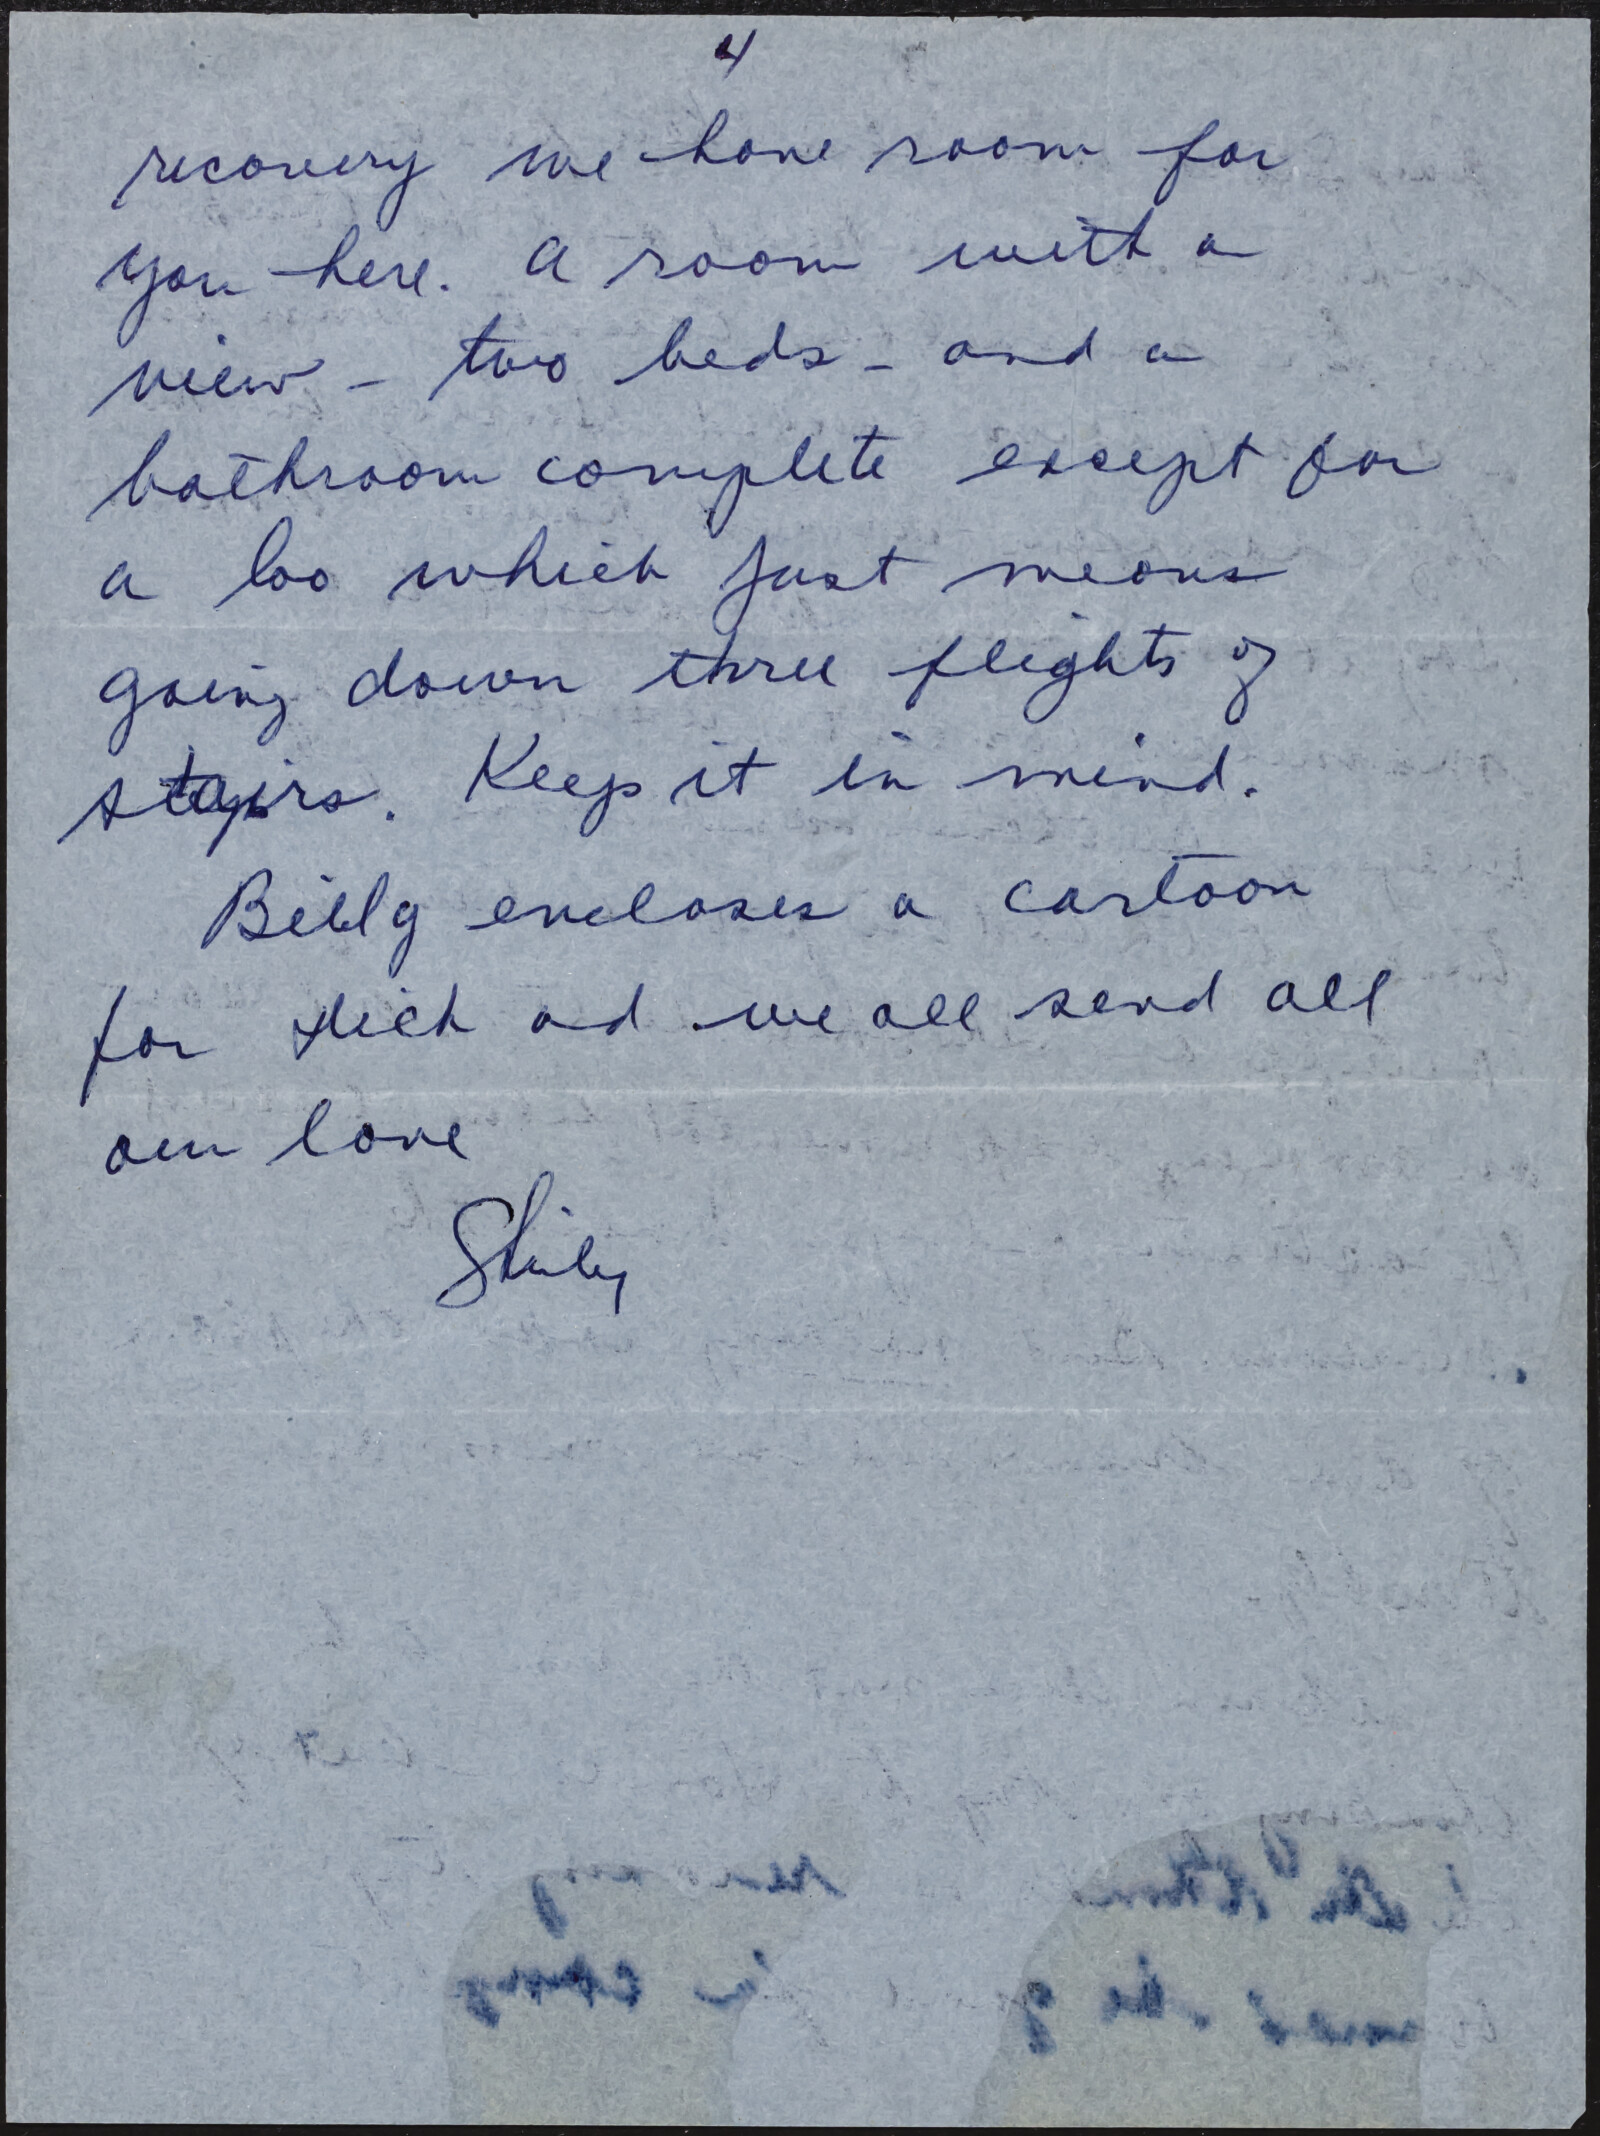 4
recovery we have room for
you here. A room with a
view - two beds - and a
bathroom complete except for
a loo which just means
going down three flights of
stairs. Keep it in mind.
Billy encloses a cartoon
for Dick and we all send all
our love
Shirley